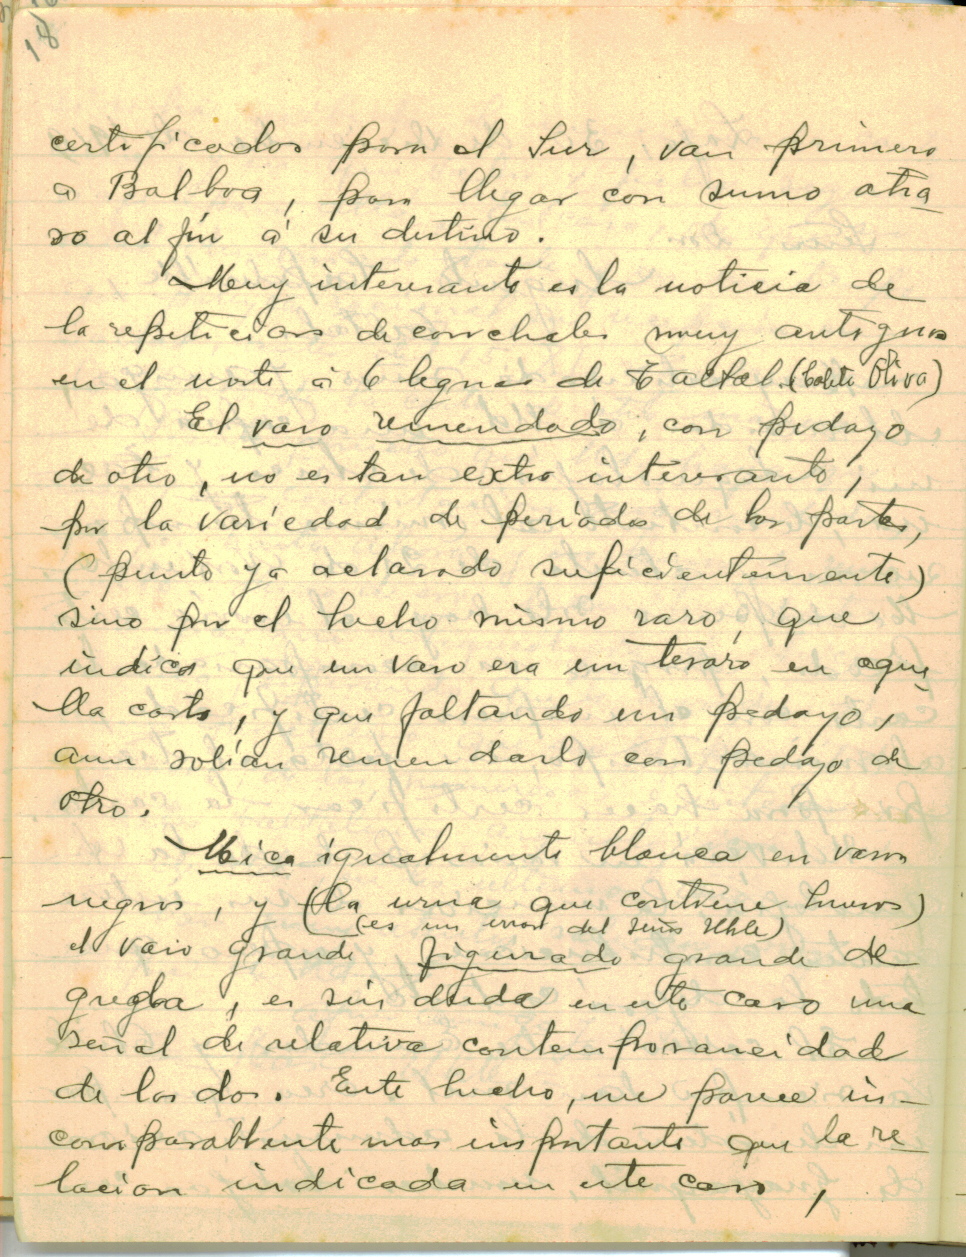 18
certificados para el Sur, van primero
a Balboa, para llegar con sumo atra-
so al fin á su destino.
Muy interesante es la noticia de
la repeticion de conchales muy antiguos
en el norte á 6 leguas de Taltal. (Caleta Oliva)
El vaso remendado, con pedazo
de otro, no es tan extra interesante,
por la variedad de periodos de las partes,
(punto ya aclarado suficientemente)
sino por el hecho mismo raro, que
indica que un vaso era un tesoro en aque-
lla costa, y que faltando un pedazo,
aun solían remendarlo con pedazo de
otro.
Mica igualmente blanca en vasos
negros, y (la urna que contiene huesos)
(es un error del Señor Uhle)
el vaso grande figurado grande de
gregba, es sin duda en este caso una
señal de relativa contemporaneidad
de los dos. Este hecho, me parece in-
comparablente mas importante que la re-
lacion indicada en este caso,